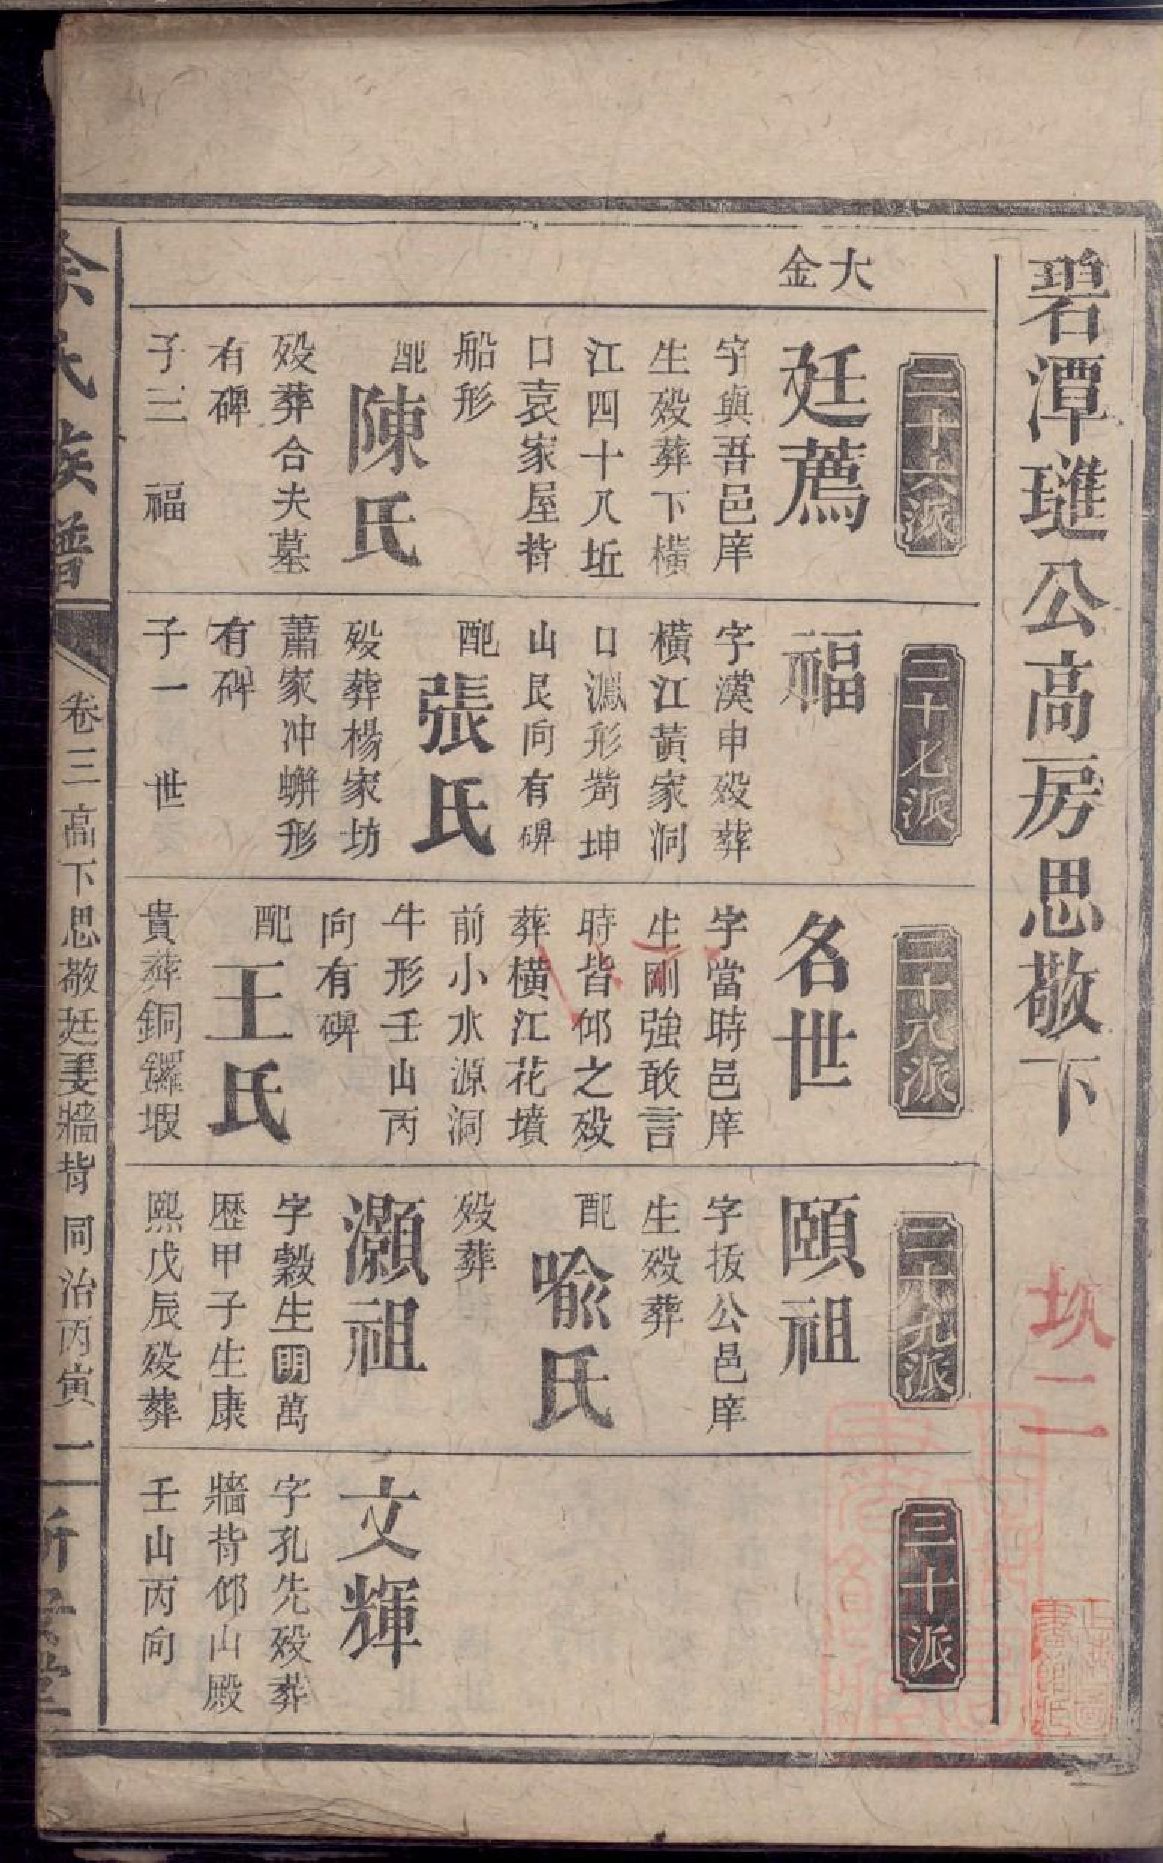 碧潭璡公高房思敬下
坎二
大
金
二十六派
廷薦
字與吾邑庠
生歿葬下橫
江四十八坵
口袁家屋背
船形
配
陳氏
歿葬合夫墓
有碑
子三　福
二十七派
福
字漢申歿葬
橫江黃家洞
口形坤
山艮向有碑
配
張氏
歿葬楊家坊
蕭家冲蠏形
有碑
子一　世
二十八派
名世
字當時邑庠
生剛強敢言
時皆仰之歿
葬橫江花墳
前小水源洞
牛形壬山丙
向有碑
配
王氏
貴葬銅鑼塅
二十九派
頤祖
字扳公邑庠
生歿葬
配
喩氏
歿葬
灝祖
字穀生明萬
歴甲子生康
熙戊辰歿葬
三十派
文輝
字孔先歿葬
牆背仰山殿
壬山丙向
余氏族譜
卷三高下思敬廷美牆背　同治丙寅　二